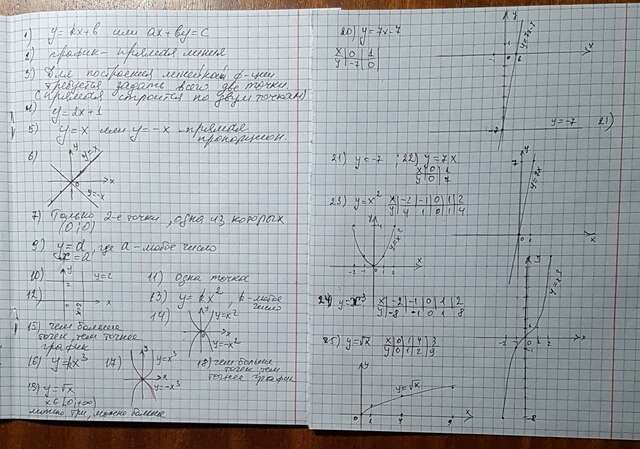 1) y=kx+b или ax+by=c
2) график - прямая линия
3) Для построения линейной ф-ции
требуется задать всего две точки
(прямая строится по двум точкам)
4) y=2x+1
5) y=x или y=-x - прямая
пропорцион.
6) y y=x
x
y=-x
7) Только 2-е точки, одна из которых
(0;0)
9) y=a, где a - любое число
x=a
10) y y=2
x
11) Одна точка
12)
13) y=kx², k - любое
число
14) y y=x²
x
y=-x²
15) чем больше
точек, тем точнее
график
16) y=kx³
17) y=x³
x
y=-x³
18) чем больше
точек, тем
точнее график
19) y=√x
x∈[0;+∞)
можно три, можно больше
20) y=7x-7
x 0 1
y -7 0
y
y=7x-7
x
-7
y=-7 21)
21) y=-7
22) y=7x
x 0 1
y 0 7
y
7
y=7x
0 1
x
23) y=x²
x -2 -1 0 1 2
y 4 1 0 1 4
y=x²
-2 -1 0 1 2
24) y=x³
x -2 -1 0 1 2
y -8 -1 0 1 8
y
8
x
-8
25) y=√x
x 0 1 4 9
y 0 1 2
y
y=√x
0 1 4 9
x